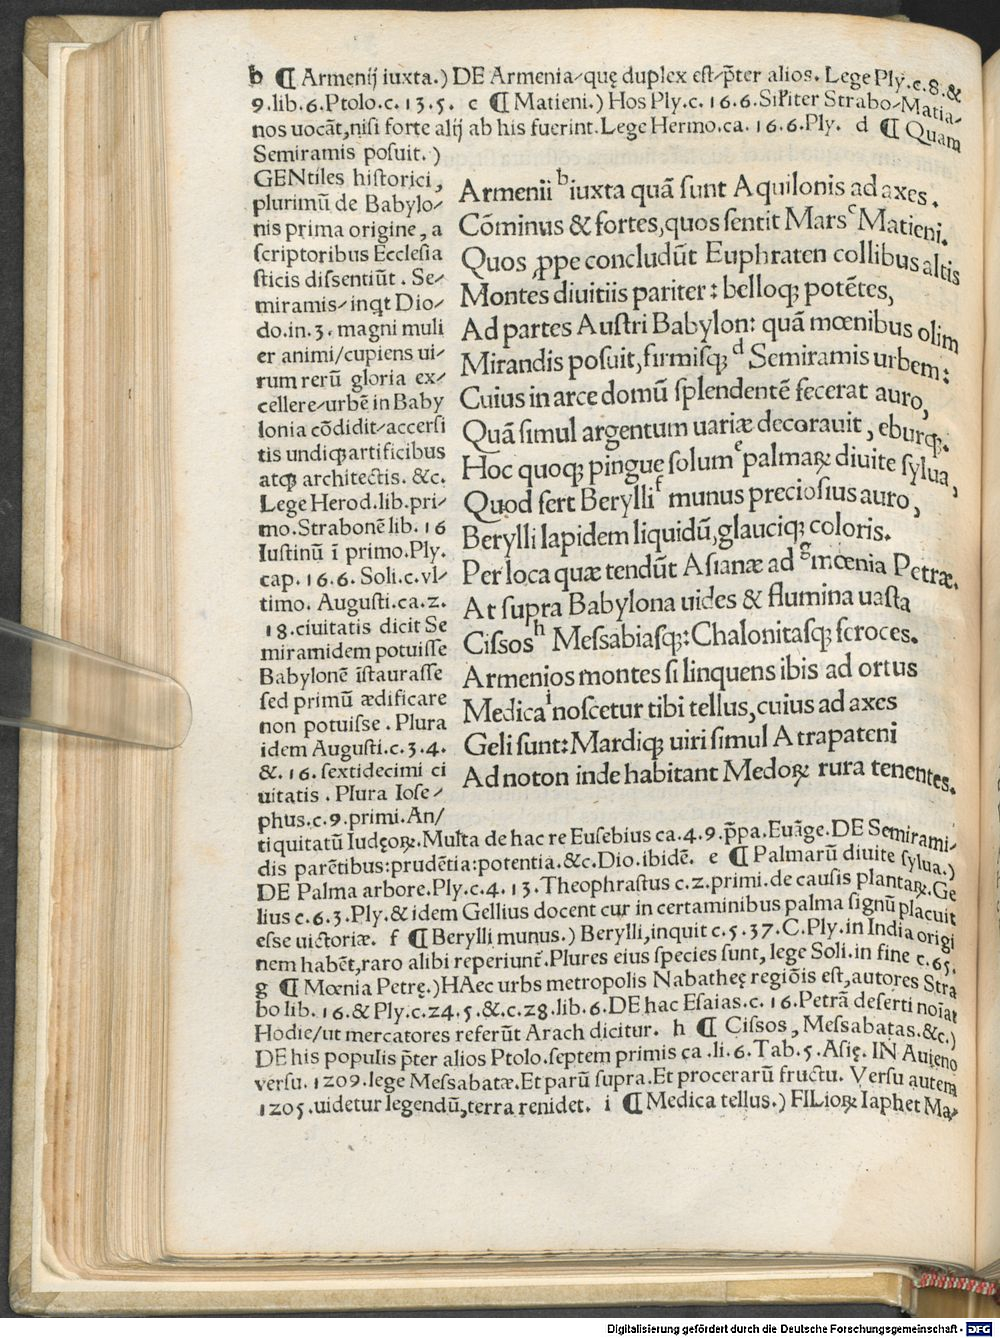 b ¶ Armenij iuxta.) DE Armenia/quę duplex est/p̄ter alios. Lege Ply.c.8.&
9.lib.6.Ptolo.c.13.5. c ¶ Matieni.) Hos Ply.c.16.6.Sil'iter Strabo/Matia/
nos uocāt,nisi forte alij ab his fuerint.Lege Hermo.ca.16.6.Ply. d ¶ Quam
Semiramis posuit.)
GENtiles historici,
plurimū de Babylo/
nis prima origine, a
scriptoribus Ecclesia
sticis dissentiūt. Se/
miramis/inqt Dio/
do.in.3.magni muli
er animi/cupiens ui/
rum rerū gloria ex/
cellere/urbē in Baby
lonia cōdidit/accersi
tis undiqꝫ artificibus
atqꝫ architectis. &c.
Lege Herod.lib.pri/
mo.Strabonē lib.16
Iustinū ī primo.Ply.
cap.16.6. Soli.c.vl/
timo. Augusti.ca.2.
18.ciuitatis dicit Se
miramidem potuisse
Babylonē īstaurasse
sed primū ædificare
non potuisse. Plura
idem Augusti.c.3.4.
&.16.sextidecimi ci
uitatis. Plura Iose/
phus.c.9.primi.An/
Armenii b iuxta quā sunt Aquilonis ad axes.
Cōminus & fortes,quos sentit Mars c Matieni.
Quos ꝓpe concludūt Euphraten collibus altis
Montes diuitiis pariter: belloqꝫ potētes,
Ad partes Austri Babylon: quā mœnibus olim
Mirandis posuit,firmisqꝫ d Semiramis urbem:
Cuius in arce domū splendentē fecerat auro,
Quā simul argentum uariæ decorauit, eburqꝫ.
Hoc quoqꝫ pingue solum e palmaꝝ diuite sylua,
Quod fert Berylli f munus preciosius auro,
Berylli lapidem liquidū,glauciqꝫ coloris.
Per loca quæ tendūt Asianæ ad g mœnia Petræ.
At supra Babylona uides & flumina uasta
Cissos h Messabiasqꝫ:Chalonitasqꝫ feroces.
Armenios montes si linquens ibis ad ortus
Medica i noscetur tibi tellus,cuius ad axes
Geli sunt:Mardiqꝫ uiri simul Atrapateni
Ad noton inde habitant Medoꝝ rura tenentes.
tiquitatū Iudęoꝝ.Multa de hac re Eusebius ca.4.9.p̄pa.Euāge.DE Semirami/
dis parētibus:prudētia:potentia.&c.Dio.ibidē. e ¶ Palmarū diuite sylua.)
DE Palma arbore.Ply.c.4.13.Theophrastus c.2.primi.de causis plantaꝝ.Ge
lius c.6.3.Ply.& idem Gellius docent cur in certaminibus palma signū placuit
esse uictoriæ. f ¶ Berylli munus.) Berylli,inquit c.5.37.C.Ply.in India origi
nem habēt,raro alibi reperiunt̄.Plures eius species sunt, lege Soli.in fine c.65.
g ¶ Mœnia Petrę.)HAec urbs metropolis Nabatheę regiōis est,autores Stra
bo lib.16.& Ply.c.24.5.&.c.28.lib.6.DE hac Esaias.c.16.Petrā deserti noīat
Hodie/ut mercatores referūt Arach dicitur. h ¶ Cissos, Messabatas.&c.)
DE his populis p̄ter alios Ptolo.septem primis ca.li.6.Tab.5.Asię. IN Auieno
versu.1209.lege Messabatæ.Et parū supra.Et procerarū fructu. Versu autem
1205.uidetur legendū,terra renidet. i ¶ Medica tellus.) FILioꝝ Iaphet Ma/
Digitalisierung gefördert durch die Deutsche Forschungsgemeinschaft - DFG